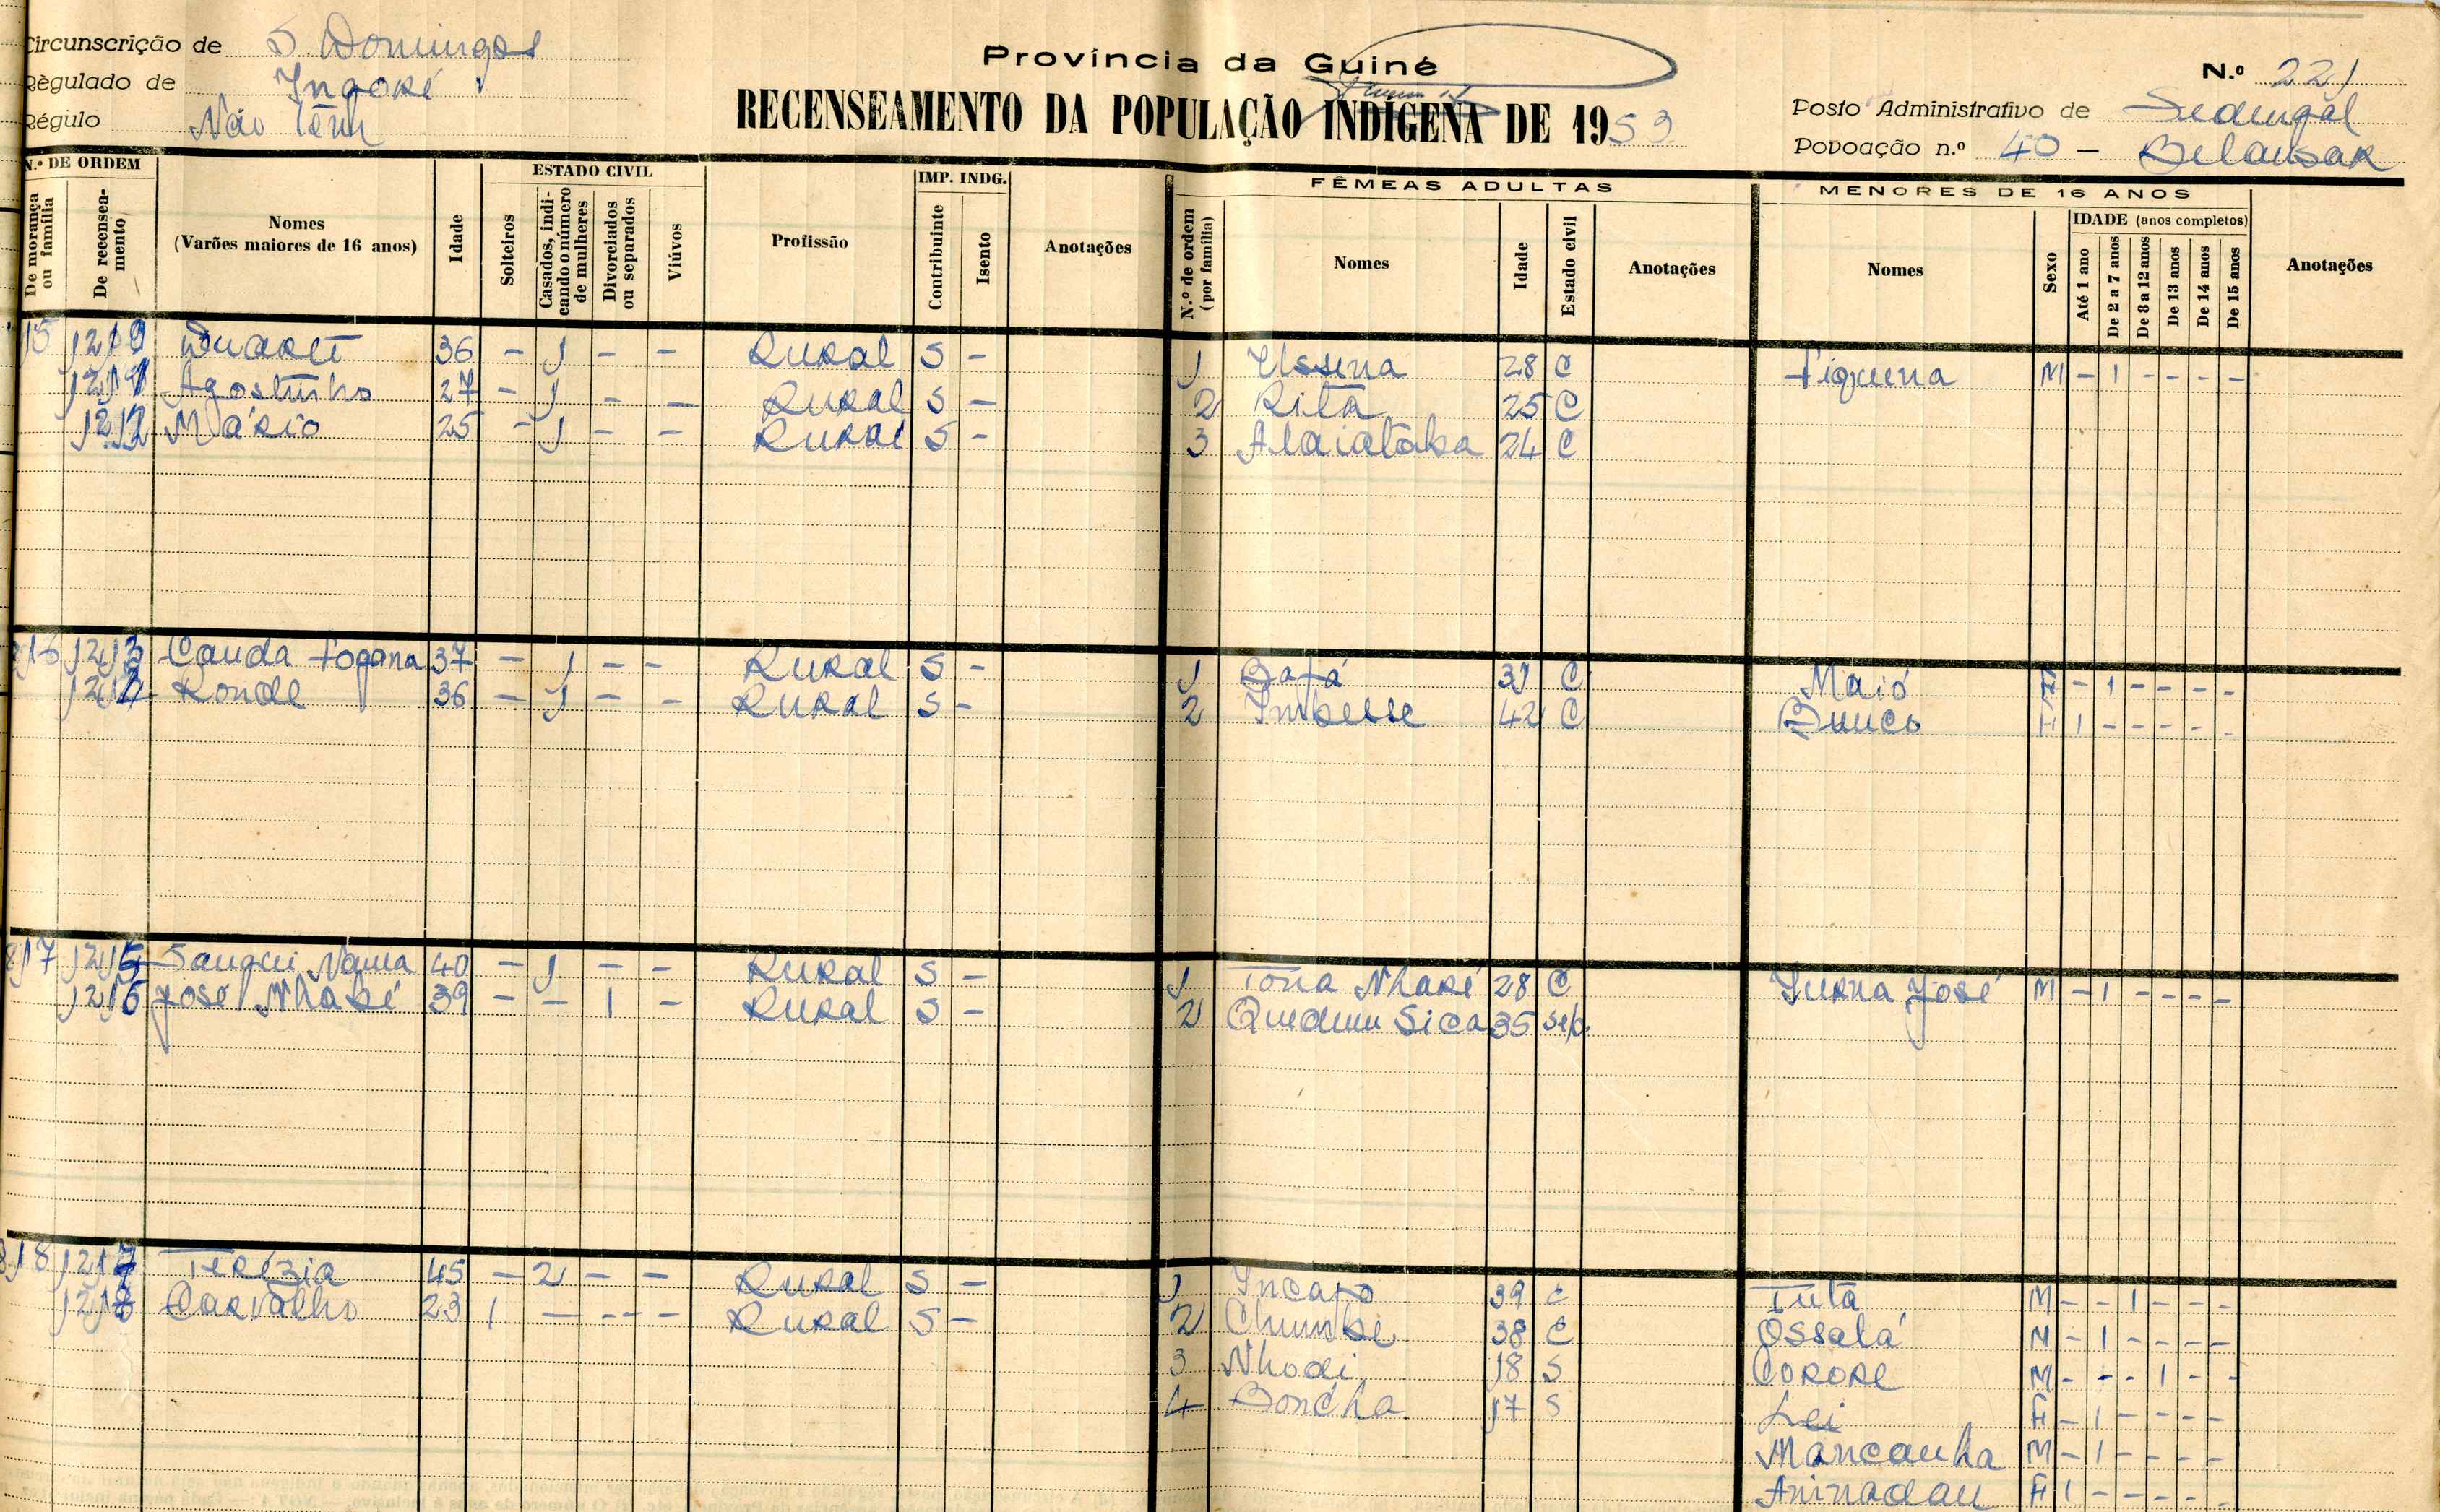 Circunscrição de S. Domingos
Règulado de Ingoré
Régulo Não Tem
Província da Guiné
RECENSEAMENTO DA POPULAÇÃO INDÍGENA DE 1953
N.º 221
Posto Administrativo de Sedengal
Povoação n.º 40 - Belansar
N.º DE ORDEM
De morança ou família
De recenseamento
Nomes (Varões maiores de 16 anos)
Idade
ESTADO CIVIL
Solteiros
Casados, indicando o número de mulheres
Divorciados ou separados
Viúvos
Profissão
IMP. INDG.
Contribuinte
Isento
Anotações
FÊMEAS ADULTAS
N.º de ordem (por família)
Nomes
Idade
Estado civil
Anotações
MENORES DE 16 ANOS
Nomes
Sexo
IDADE (anos completos)
Até 1 ano
De 2 a 7 anos
De 8 a 12 anos
De 13 anos
De 14 anos
De 15 anos
Anotações
15 1210 Duarte 36 - 1 - - Rural S - 1 Ussena 28 C Fiquena M - 1 - - - -
1211 Agostinho 27 - 1 - - Rural S - 2 Rita 25 C
1212 Mário 25 - 1 - - Rural S - 3 Alaiataba 24 C
16 1213 Cauda Fogana 37 - 1 - - Rural S - 1 Bafá 31 C Maió - 1 - - - -
Ronde 36 - 1 - - Rural S - 2 Imbesse 42 C Bunco F 1 - - - - -
17 1215 Sanqui Nama 40 - 1 - - Rural S - 1 Tona Nharé 28 C Jurna José M - 1 - - - -
1216 José Nhabé 39 - - 1 - Rural S - 2 Quedum Sica 35 sep.
18 1217 Terézia 45 - 2 - - Rural S - 1 Incapo 39 C Tuta M - - 1 - - -
1218 Carvalho 23 1 - - - Rural S - 2 Chumbe 38 C Ossalá M - 1 - - - -
3 Nhodi 18 S Corore M - - - 1 - -
4 Boncha 17 S Lei F - 1 - - - -
Mancanha M - 1 - - - -
Aninadau F 1 - - - - -